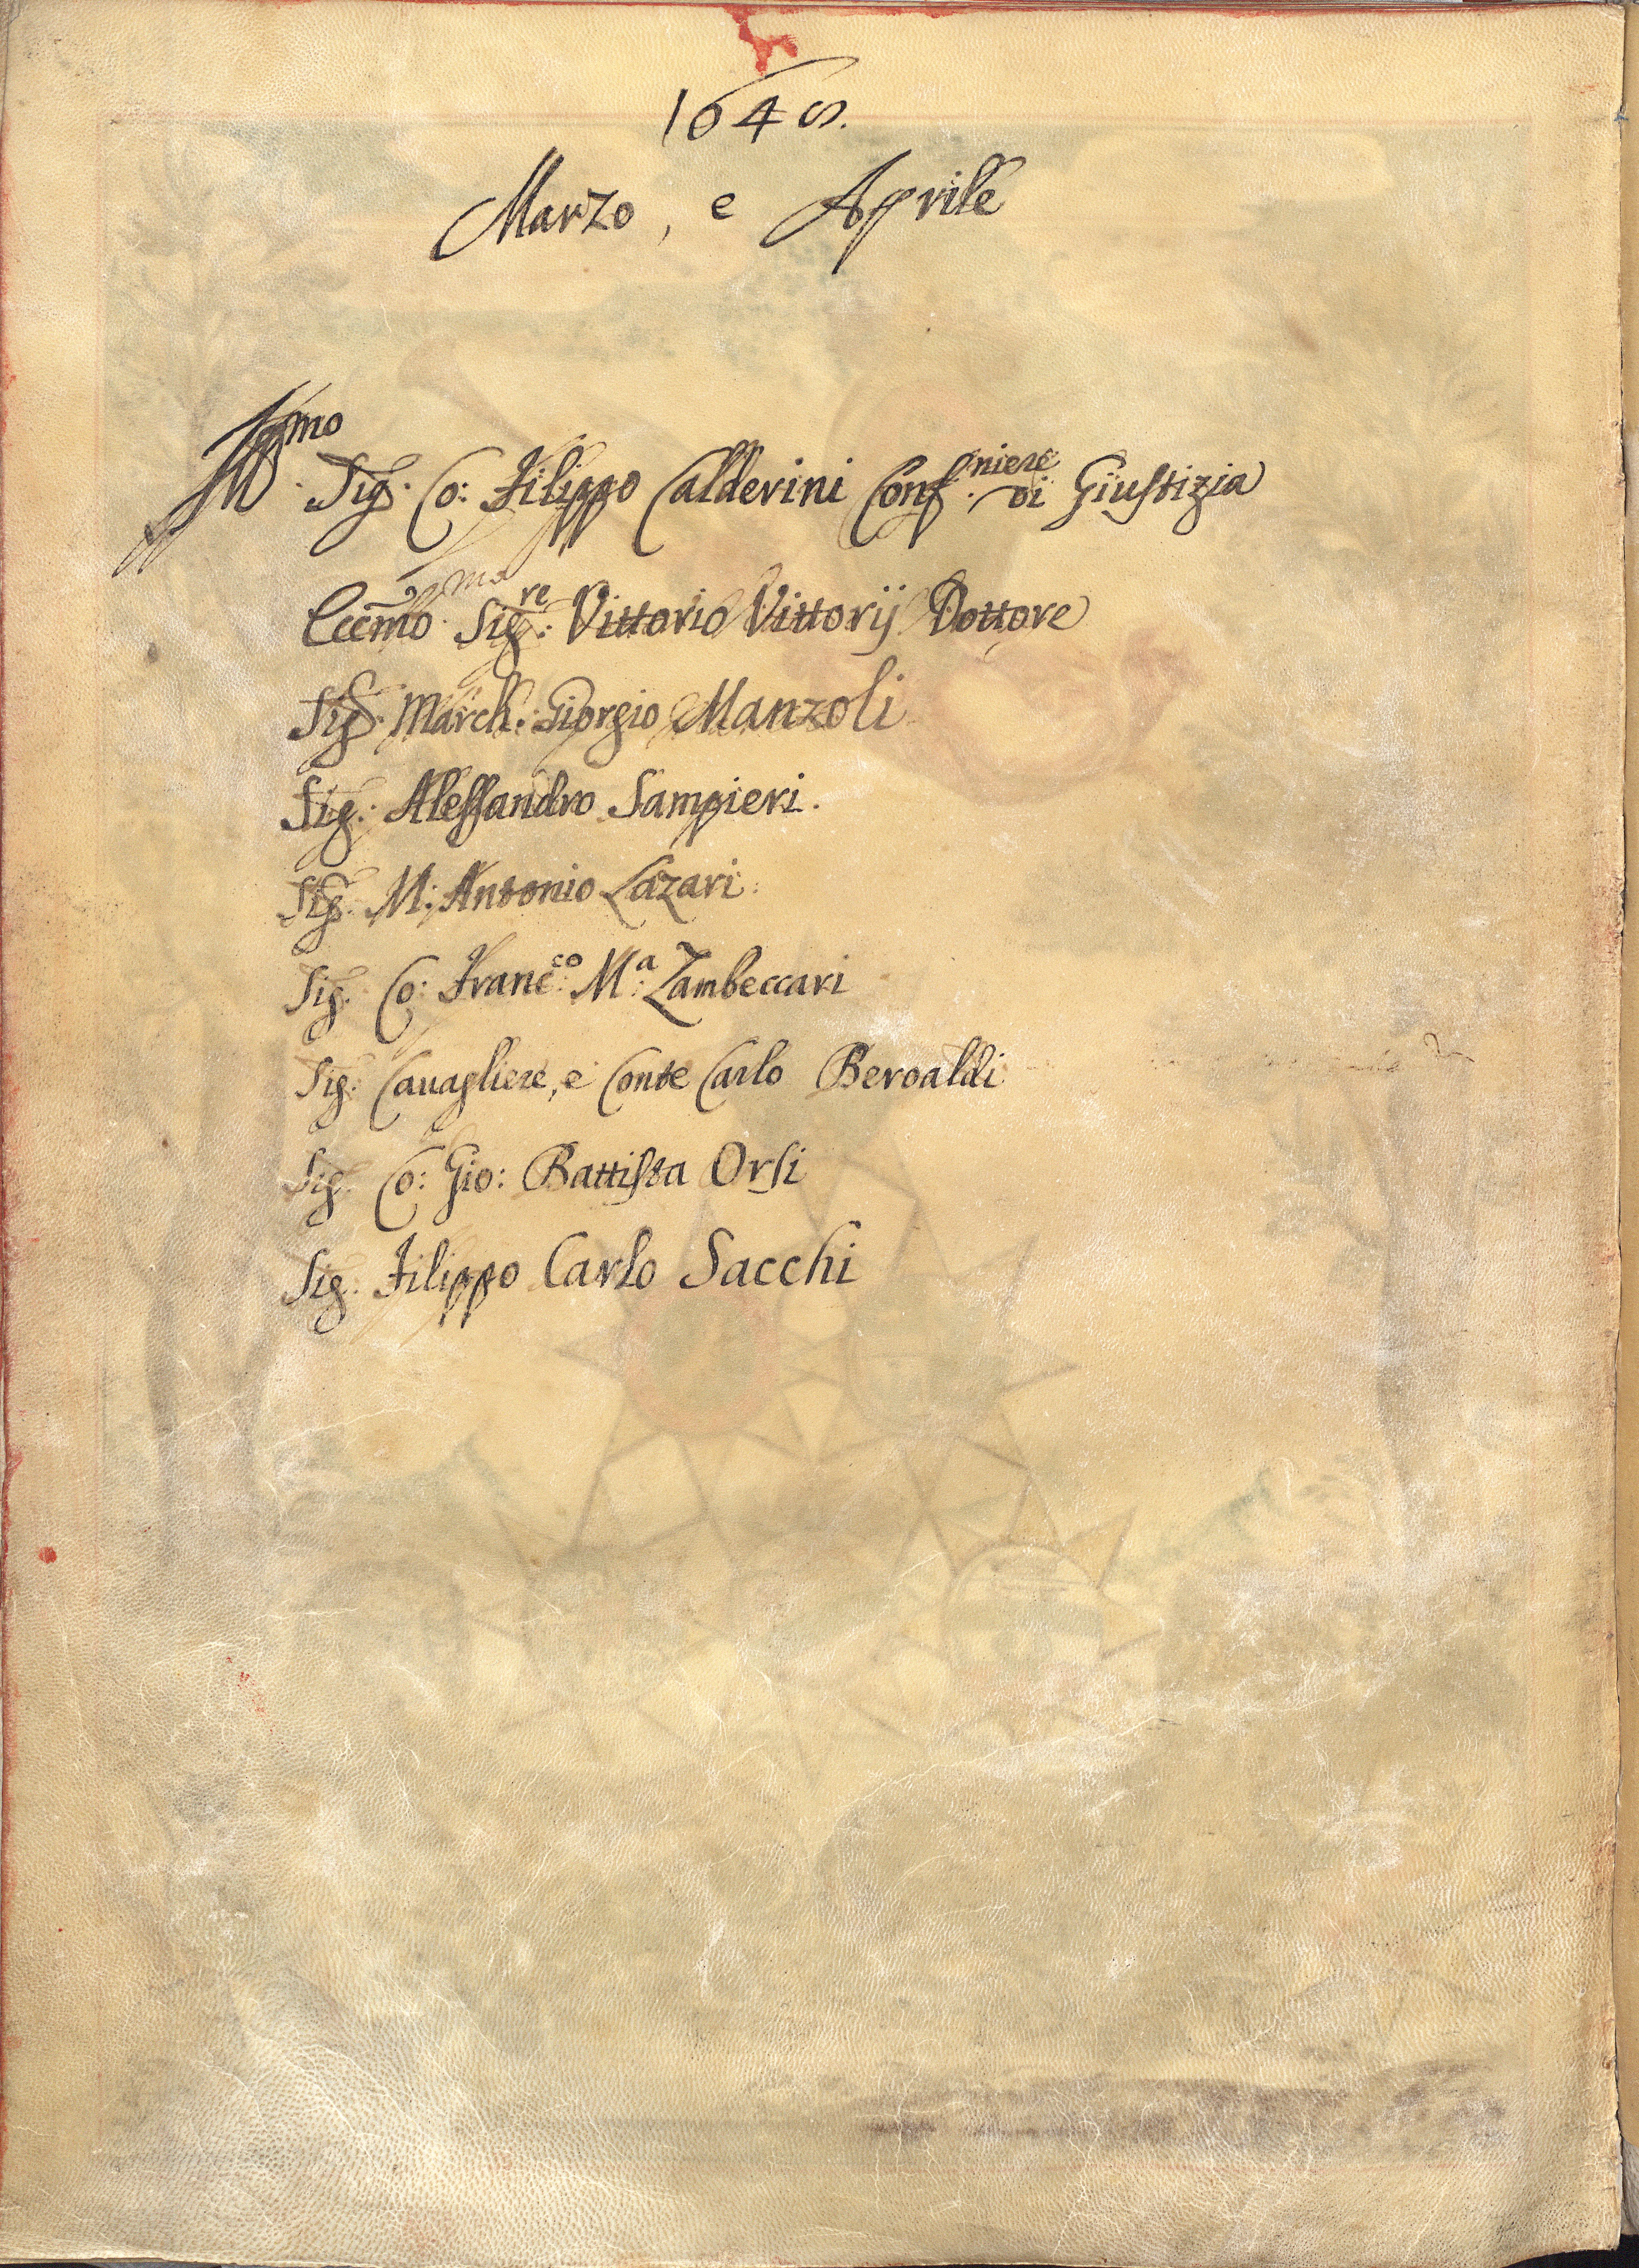 1648.
Marzo, e Aprile
Ill.mo Sig. Co: Filippo Calderini Conf.niere di Giustizia
Eccmo. Sig.re: Vittorio Vittorij Dottore
Sig. March. Giorgio Manzoli
Sig. Alessandro Sampieri.
Sig. M. Antonio Lazari.
Sig. Co: Franc.co M.a Zambeccari
Sig. Cauagliere, e Conte Carlo Beroaldi
Sig. Co: Gio: Battista Orsi
Sig. Filippo Carlo Sacchi